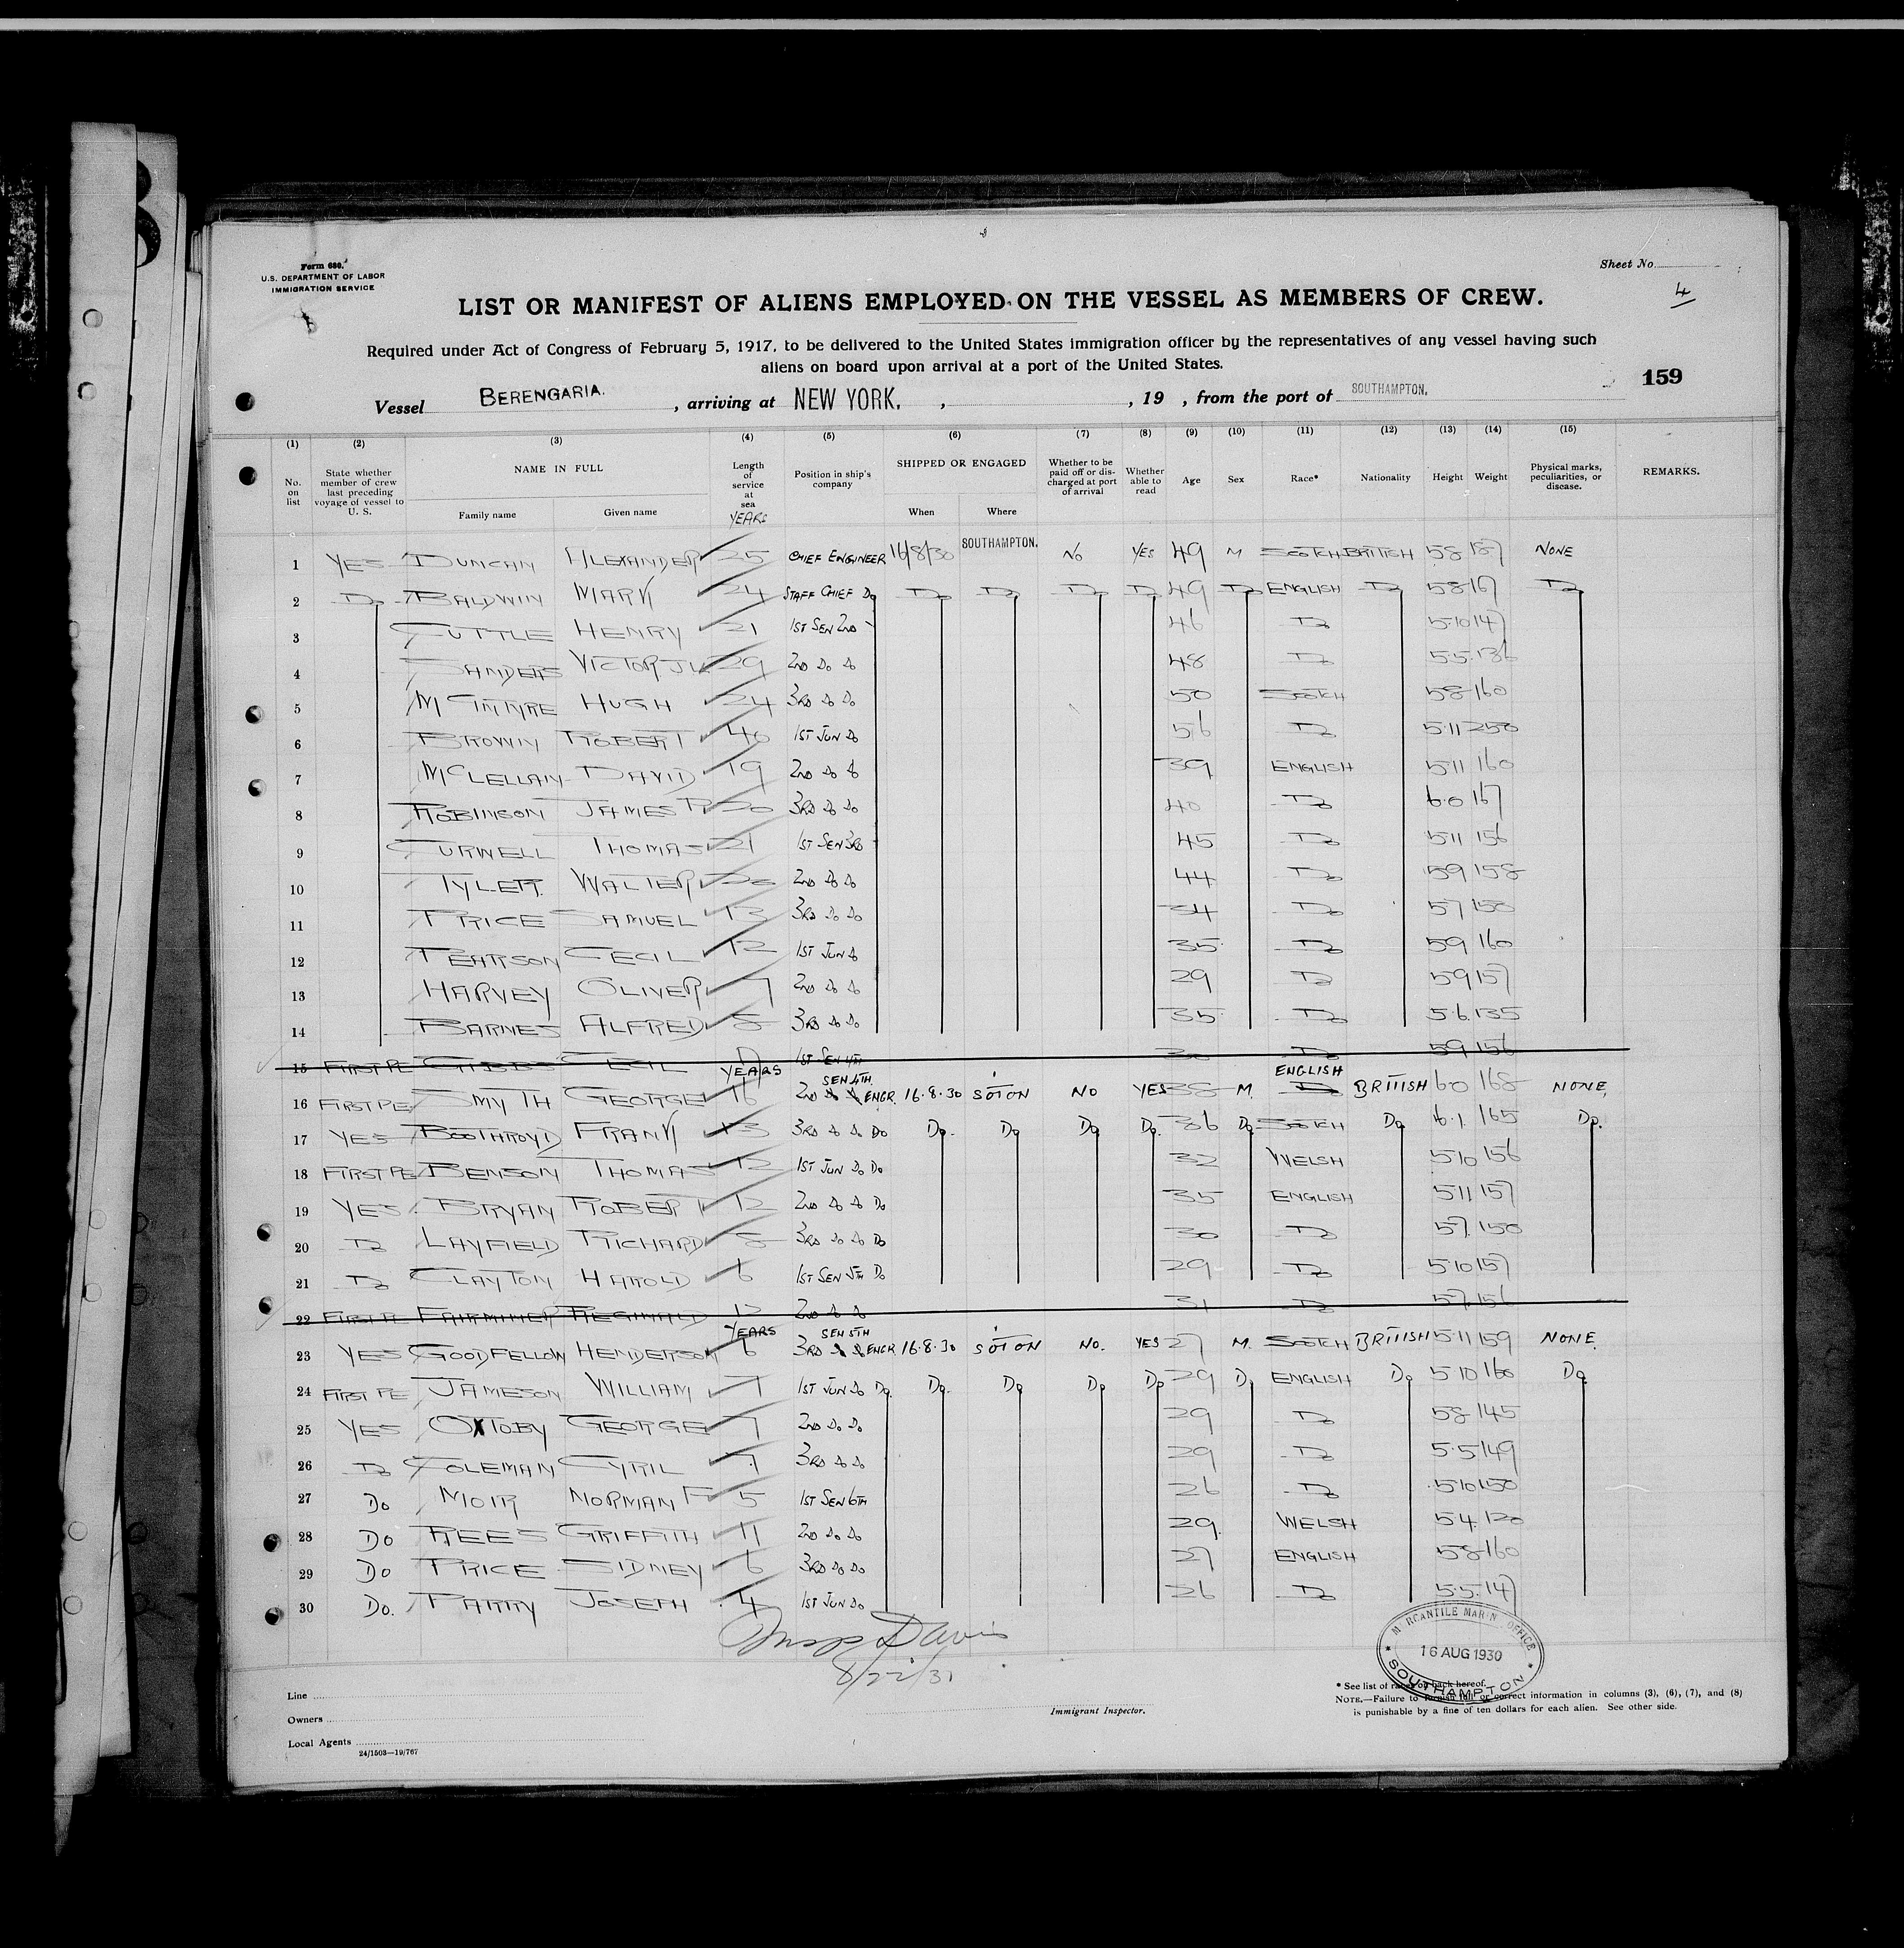 Form 680.
U.S. DEPARTMENT OF LABOR
IMMIGRATION SERVICE
Sheet No.
4
LIST OR MANIFEST OF ALIENS EMPLOYED ON THE VESSEL AS MEMBERS OF CREW.
Required under Act of Congress of February 5, 1917, to be delivered to the United States immigration officer by the representatives of any vessel having such
aliens on board upon arrival at a port of the United States.
159
Vessel BERENGARIA. , arriving at NEW YORK. , , 19 , from the port of SOUTHAMPTON.
(1) (2) (3) (4) (5) (6) (7) (8) (9) (10) (11) (12) (13) (14) (15)
No. on list State whether member of crew last preceding voyage of vessel to U. S. NAME IN FULL Family name Given name Length of service at sea YEARS Position in ship's company SHIPPED OR ENGAGED When Where Whether to be paid off or discharged at port of arrival Whether able to read Age Sex Race* Nationality Height Weight Physical marks, peculiarities, or disease. REMARKS.
1 YES DUNCAN ALEXANDER 25 CHIEF ENGINEER 16/8/30 SOUTHAMPTON. NO YES 49 M SCOTCH BRITISH 58 187 NONE
2 Do BALDWIN MARK 24 STAFF CHIEF Do Do Do Do Do 49 Do ENGLISH Do 58 167 Do
3 CUTTLE HENRY 21 1ST SEN 2ND 46 Do 5·10 147
4 SANDERS VICTOR J 29 2ND Do Do 48 Do 5·5 136
5 MCINTYRE HUGH 24 3RD Do Do 50 SCOTCH 58 160
6 BROWN ROBERT 40 1ST JUN Do 56 Do 5·11 250
7 MCLELLAN DAVID 19 2ND Do Do 39 ENGLISH 5·11 160
8 ROBINSON JAMES R 20 3RD Do Do 40 Do 6·0 167
9 CURWELL THOMAS 21 1ST SEN 3RD 45 Do 5·11 156
10 TYLER WALTER 20 2ND Do Do 44 Do 59 158
11 PRICE SAMUEL 13 3RD Do Do 34 Do 57 150
12 PEARSON CECIL 12 1ST JUN Do 35 Do 59 160
13 HARVEY OLIVER 7 2ND Do Do 29 Do 59 157
14 BARNES ALFRED 8 3RD Do Do 35 Do 5·6 135
15 FIRST PE GIBBS CECIL 7 1ST SEN 4TH 30 Do 59 156
16 FIRST PE SMYTH GEORGE YEARS 16 2ND SEN 4TH ENGR. 16·8·30 SOTON NO YES 38 M. ENGLISH BRITISH 60 168 NONE.
17 YES BOOTHROYD FRANK 13 3RD Do Do Do Do. Do Do Do. 36 Do SCOTCH Do 6·1. 165 Do.
18 FIRST PE BENSON THOMAS 12 1ST JUN Do Do 32 WELSH 5·10 156
19 YES BRYAN ROBERT 12 2ND Do Do Do 35 ENGLISH 5·11 157
20 Do LAYFIELD RICHARD 8 3RD Do Do Do 30 Do 57 150
21 Do CLAYTON HAROLD 6 1ST SEN 5TH Do 29 Do 5·10 157
22 FIRST PE FAIRMINER REGINALD 12 2ND Do Do 31 Do 57 156
23 YES GOODFELLOW HENDERSON YEARS 6 3RD SEN 5TH ENGR 16·8·30 SOTON NO. YES 27 M. SCOTCH BRITISH 5·11 159 NONE.
24 FIRST PE JAMESON WILLIAM 7 1ST JUN Do Do Do. Do Do Do 29 Do ENGLISH Do 5·10 160 Do
25 YES OXTOBY GEORGE 7 2ND Do Do. 29 Do 58 145
26 Do COLEMAN CYRIL 7 3RD Do Do 29 Do 5·5 149
27 Do MOIR NORMAN F 5 1ST SEN 6TH 26 Do 5·10 150
28 Do REES GRIFFITH 11 2ND Do Do 29 WELSH 54 120
29 Do PRICE SIDNEY 6 3RD Do Do 27 ENGLISH 58 160
30 Do. PARRY JOSEPH 4 1ST JUN Do 26 Do 5·5 147
Davis
8/22/31
MERCANTILE MARINE OFFICE
16 AUG 1930
SOUTHAMPTON
Line
Owners
Local Agents
24/1503—19/767
Immigrant Inspector.
* See list of races on back hereof.
NOTE.—Failure to furnish full or correct information in columns (3), (6), (7), and (8)
is punishable by a fine of ten dollars for each alien. See other side.